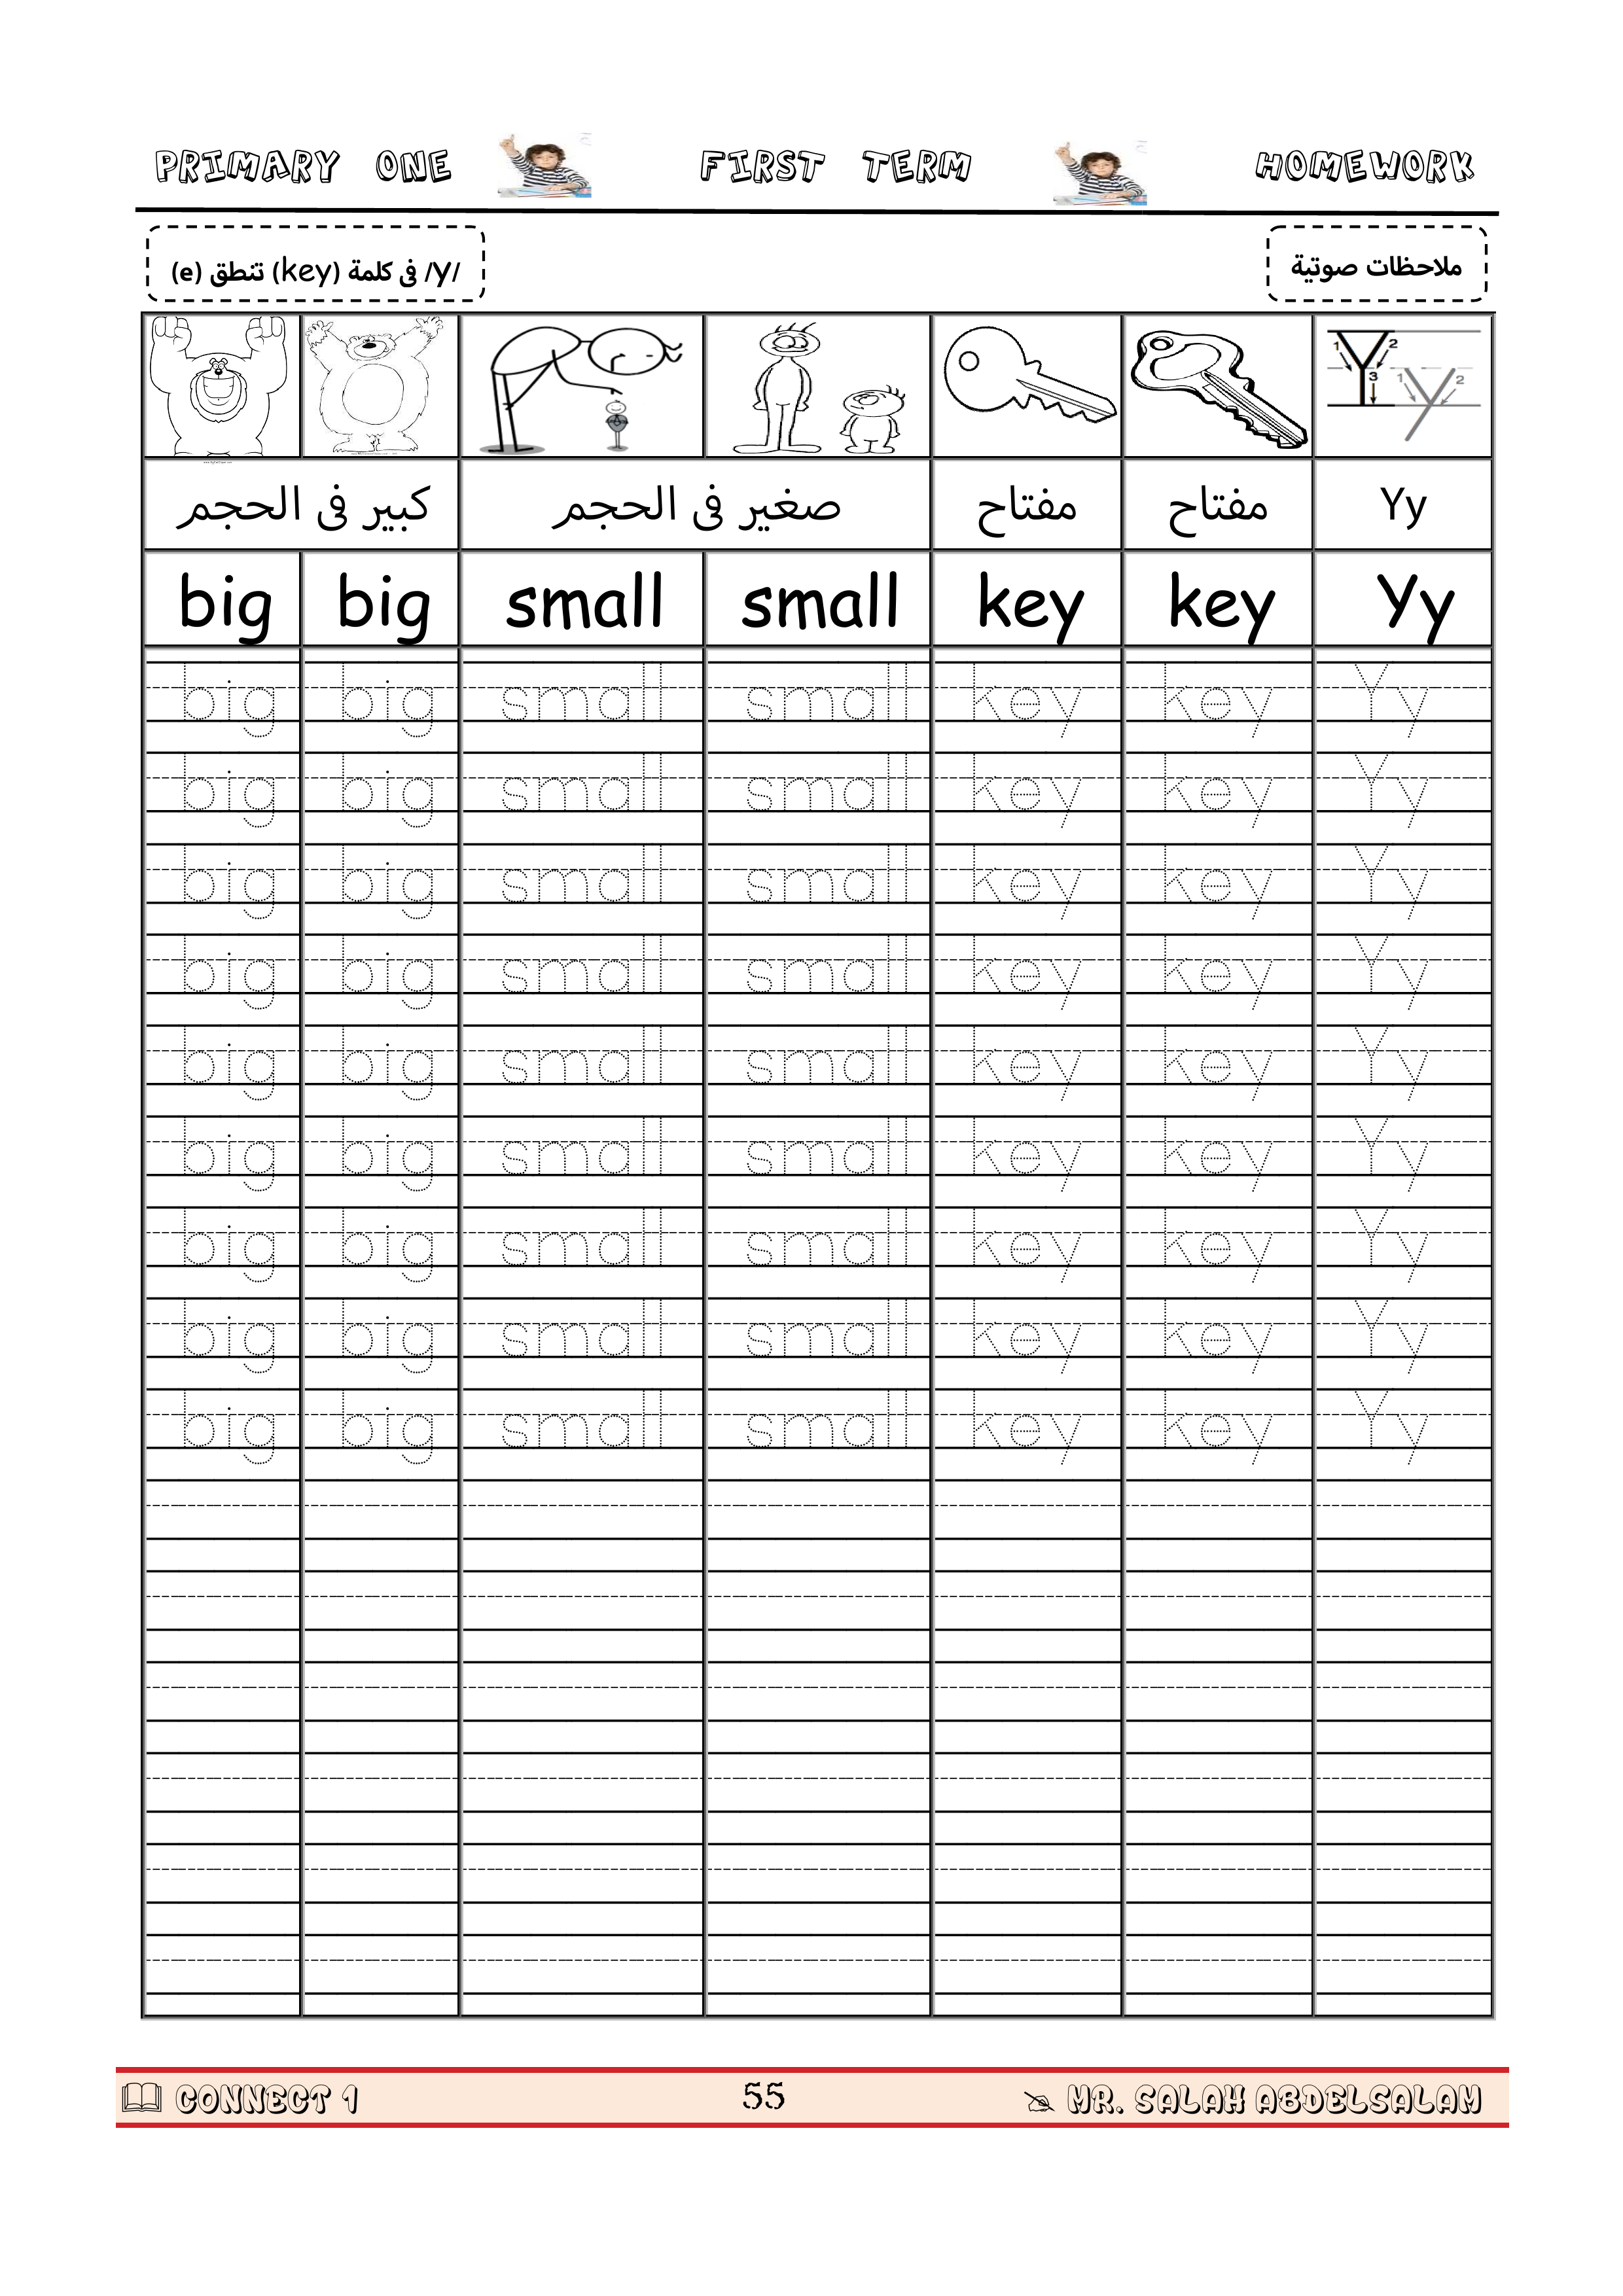 PRIMARY ONE FIRST TERM HOMEWORK
/y/ فى كلمة (key) تنطق (e) ملاحظات صوتية
1 2 3 1 2
كبير فى الحجم صغير فى الحجم مفتاح مفتاح Yy
big big small small key key Yy
big big small small key key Yy
big big small small key key Yy
big big small small key key Yy
big big small small key key Yy
big big small small key key Yy
big big small small key key Yy
big big small small key key Yy
big big small small key key Yy
big big small small key key Yy
CONNECT 1 55 MR. SALAH ABDELSALAM